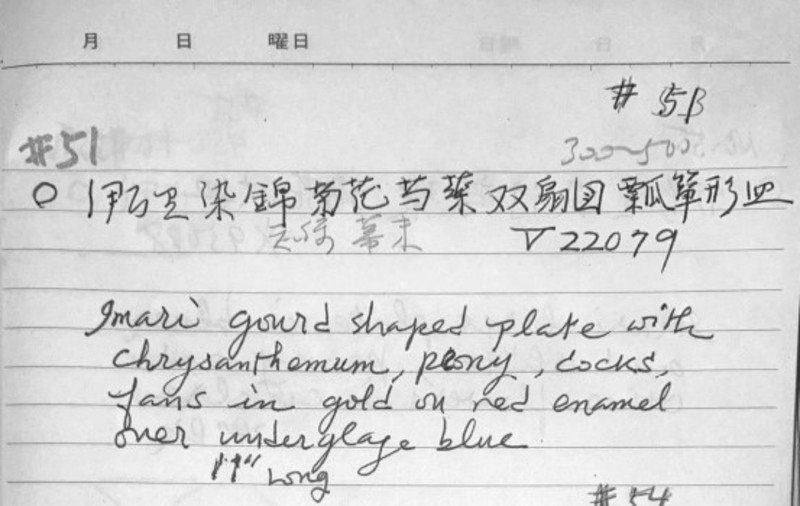 月 日 曜日
# 51
300~500
○ 伊万里染錦菊花芍薬双扇図瓢箪形皿
幕末 V22079
Imari gourd shaped plate with
chrysanthemum, peony, cocks,
fans in gold on red enamel
over underglaze blue
11" Long
#54